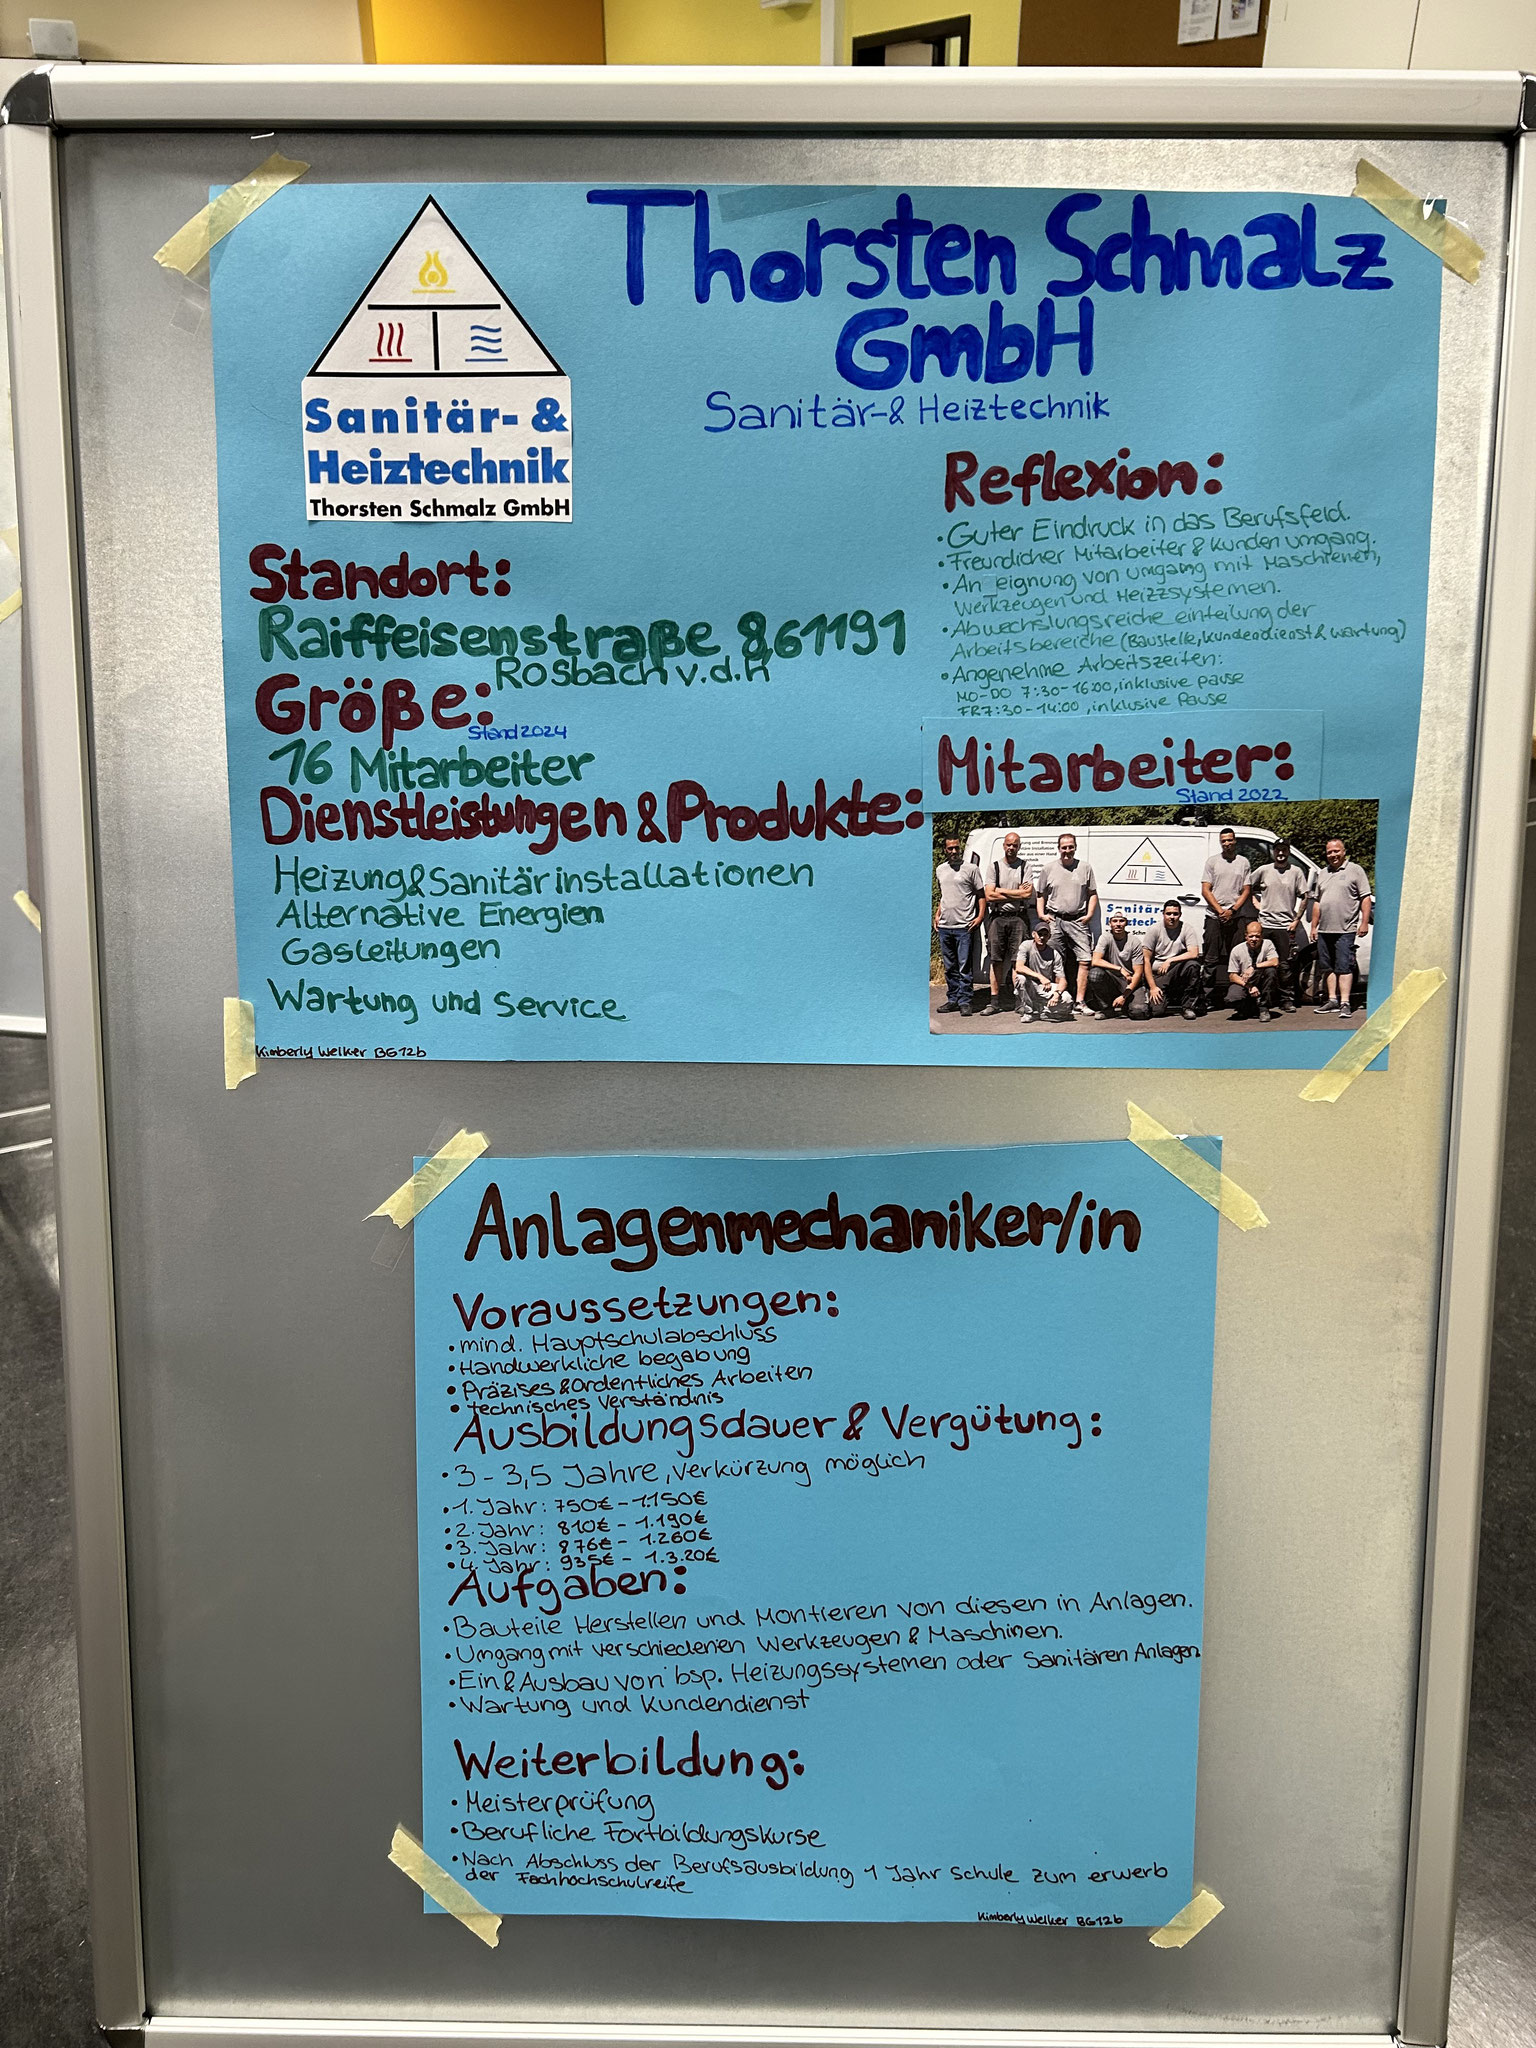 Thorsten Schmalz
GmbH
Sanitär-& Heiztechnik
Sanitär- &
Heiztechnik
Thorsten Schmalz GmbH
Standort:
Raiffeisenstraße 8 61191
Rosbach v.d.H
Größe:
Stand 2024
16 Mitarbeiter
Dienstleistungen & Produkte:
Heizung&Sanitärinstallationen
Alternative Energien
Gasleitungen
Wartung und Service
Kimberly Welker BG12b
Reflexion:
• Guter Eindruck in das Berufsfeld.
• Freundlicher Mitarbeiter & Kunden umgang.
• An eignung von umgang mit Maschienen,
Werkzeugen und Heizzsystemen.
• Abwechslungsreiche einteilung der
Arbeitsbereiche (Baustelle, Kundendienst & Wartung)
• Angenehme Arbeitszeiten:
MO-DO 7:30-16:00, inklusive pause
FR 7:30-14:00, inklusive Pause
Mitarbeiter:
Stand 2022
Sanitär-
Heiztech
Anlagenmechaniker/in
Voraussetzungen:
• mind. Hauptschulabschluss
• Handwerkliche begabung
• Präzises & Ordentliches Arbeiten
• technisches Verständnis
Ausbildungsdauer & Vergütung:
• 3 - 3,5 Jahre, Verkürzung möglich
• 1. Jahr: 750€ - 1.150€
• 2. Jahr: 810€ - 1.190€
• 3. Jahr: 876€ - 1.260€
• 4. Jahr: 935€ - 1.3.20€
Aufgaben:
• Bauteile Herstellen und Montieren von diesen in Anlagen.
• Umgang mit verschiedenen Werkzeugen & Maschinen.
• Ein & Ausbau von bsp. Heizungssystemen oder Sanitären Anlagen.
• Wartung und Kundendienst
Weiterbildung:
• Meisterprüfung
• Berufliche Fortbildungskurse
• Nach Abschluss der Berufsausbildung 1 Jahr Schule zum erwerb
der Fachhochschulreife
Kimberly Welker BG12b